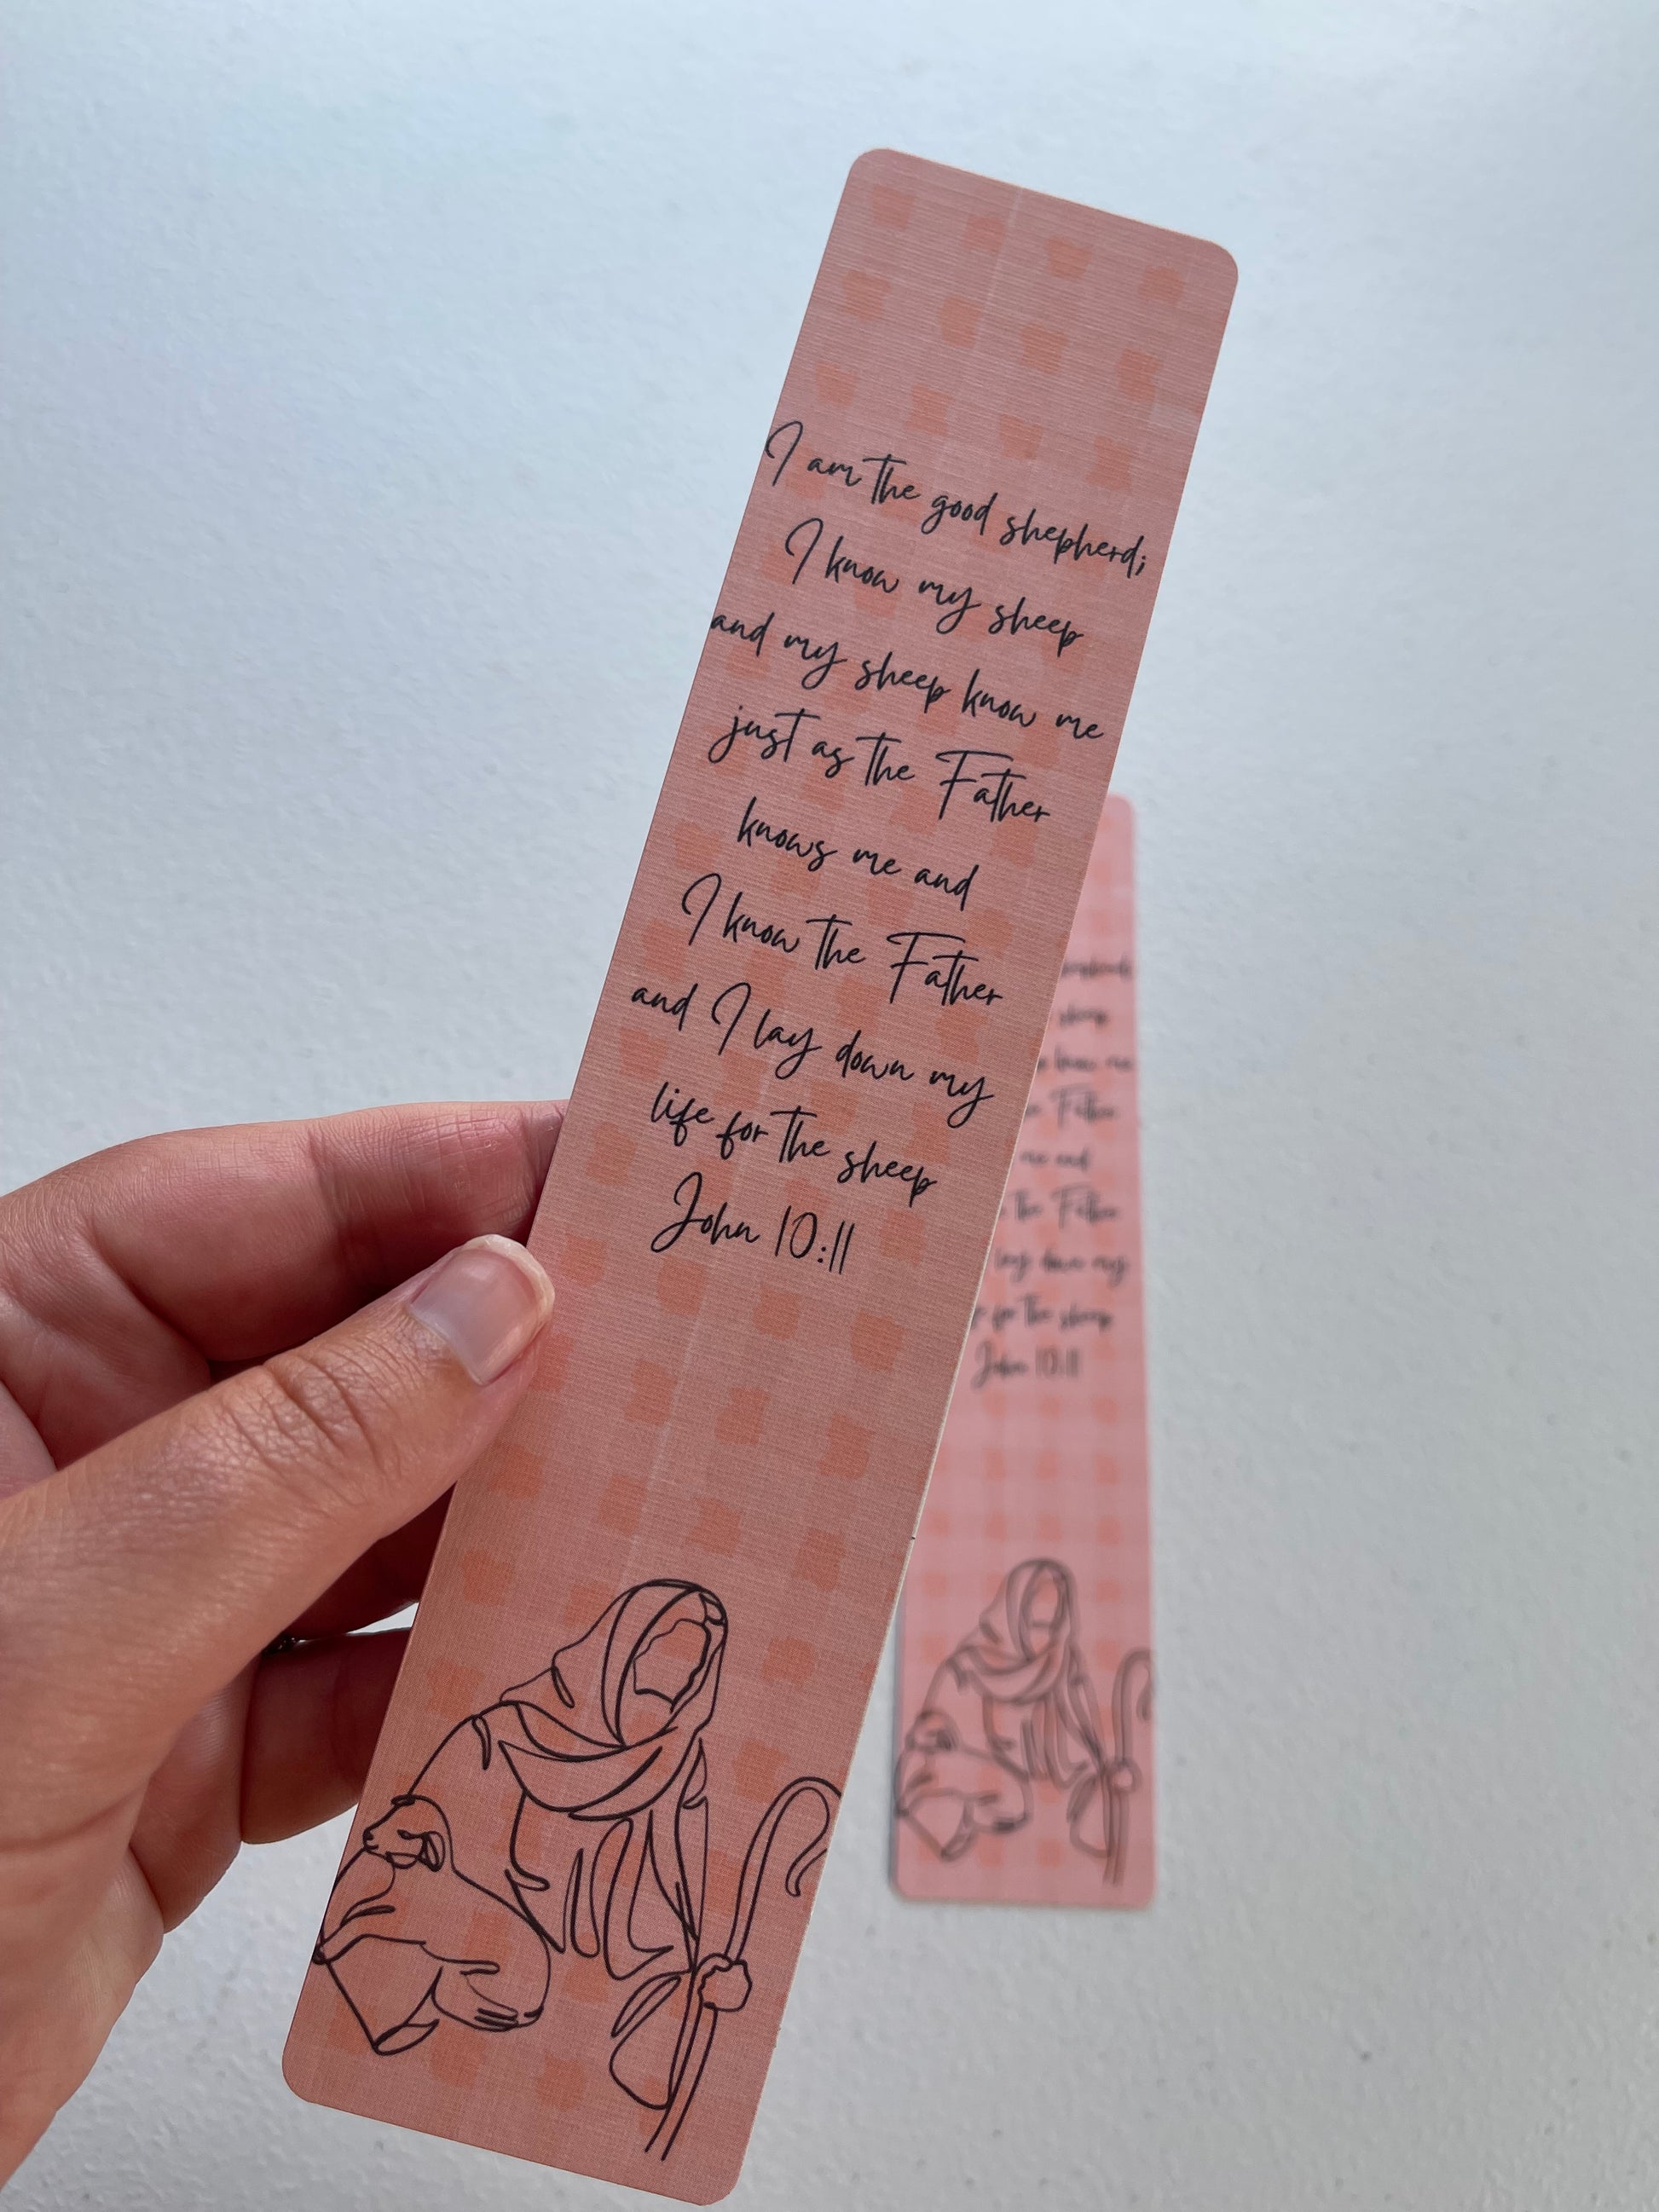 I am the good shepherd;
I know my sheep
and my sheep know me
just as the Father
knows me and
I know the Father
and I lay down my
life for the sheep
John 10:11
sheep
know me
Father
me and
the Father
lay down my
for the sheep
John 10:11